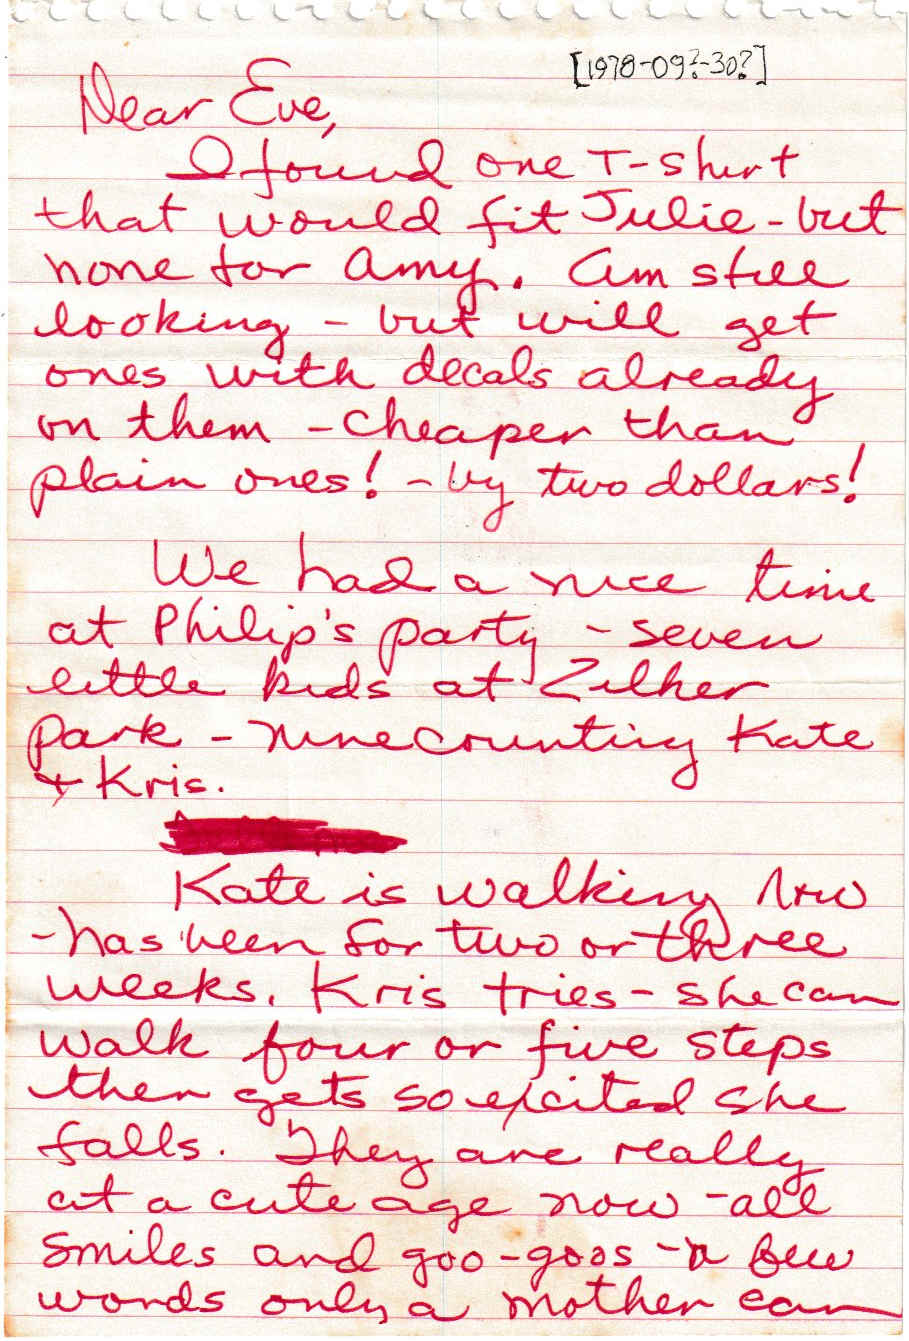 [1978-09?-30?]
Dear Eve,
I found one T-shirt
that would fit Julie - but
none for Amy. Am still
looking - but will get
ones with decals already
on them - cheaper than
plain ones! - by two dollars!
We had a nice time
at Philip's party - seven
little kids at Zilker
Park - nine counting Kate
+ Kris.
Kate is walking now
- has been for two or three
weeks. Kris tries - she can
walk four or five steps
then gets so excited she
falls. They are really
at a cute age now - all
smiles and goo-goos - a few
words only a mother can